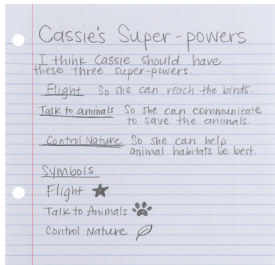 Cassie's Super-powers
I think Cassie should have
these three super-powers.
Flight So she can reach the birds.
Talk to animals So she can communicate
to save the animals.
Control Nature So she can help
animal habitats be best.
Symbols
Flight
Talk to Animals
Control Nature